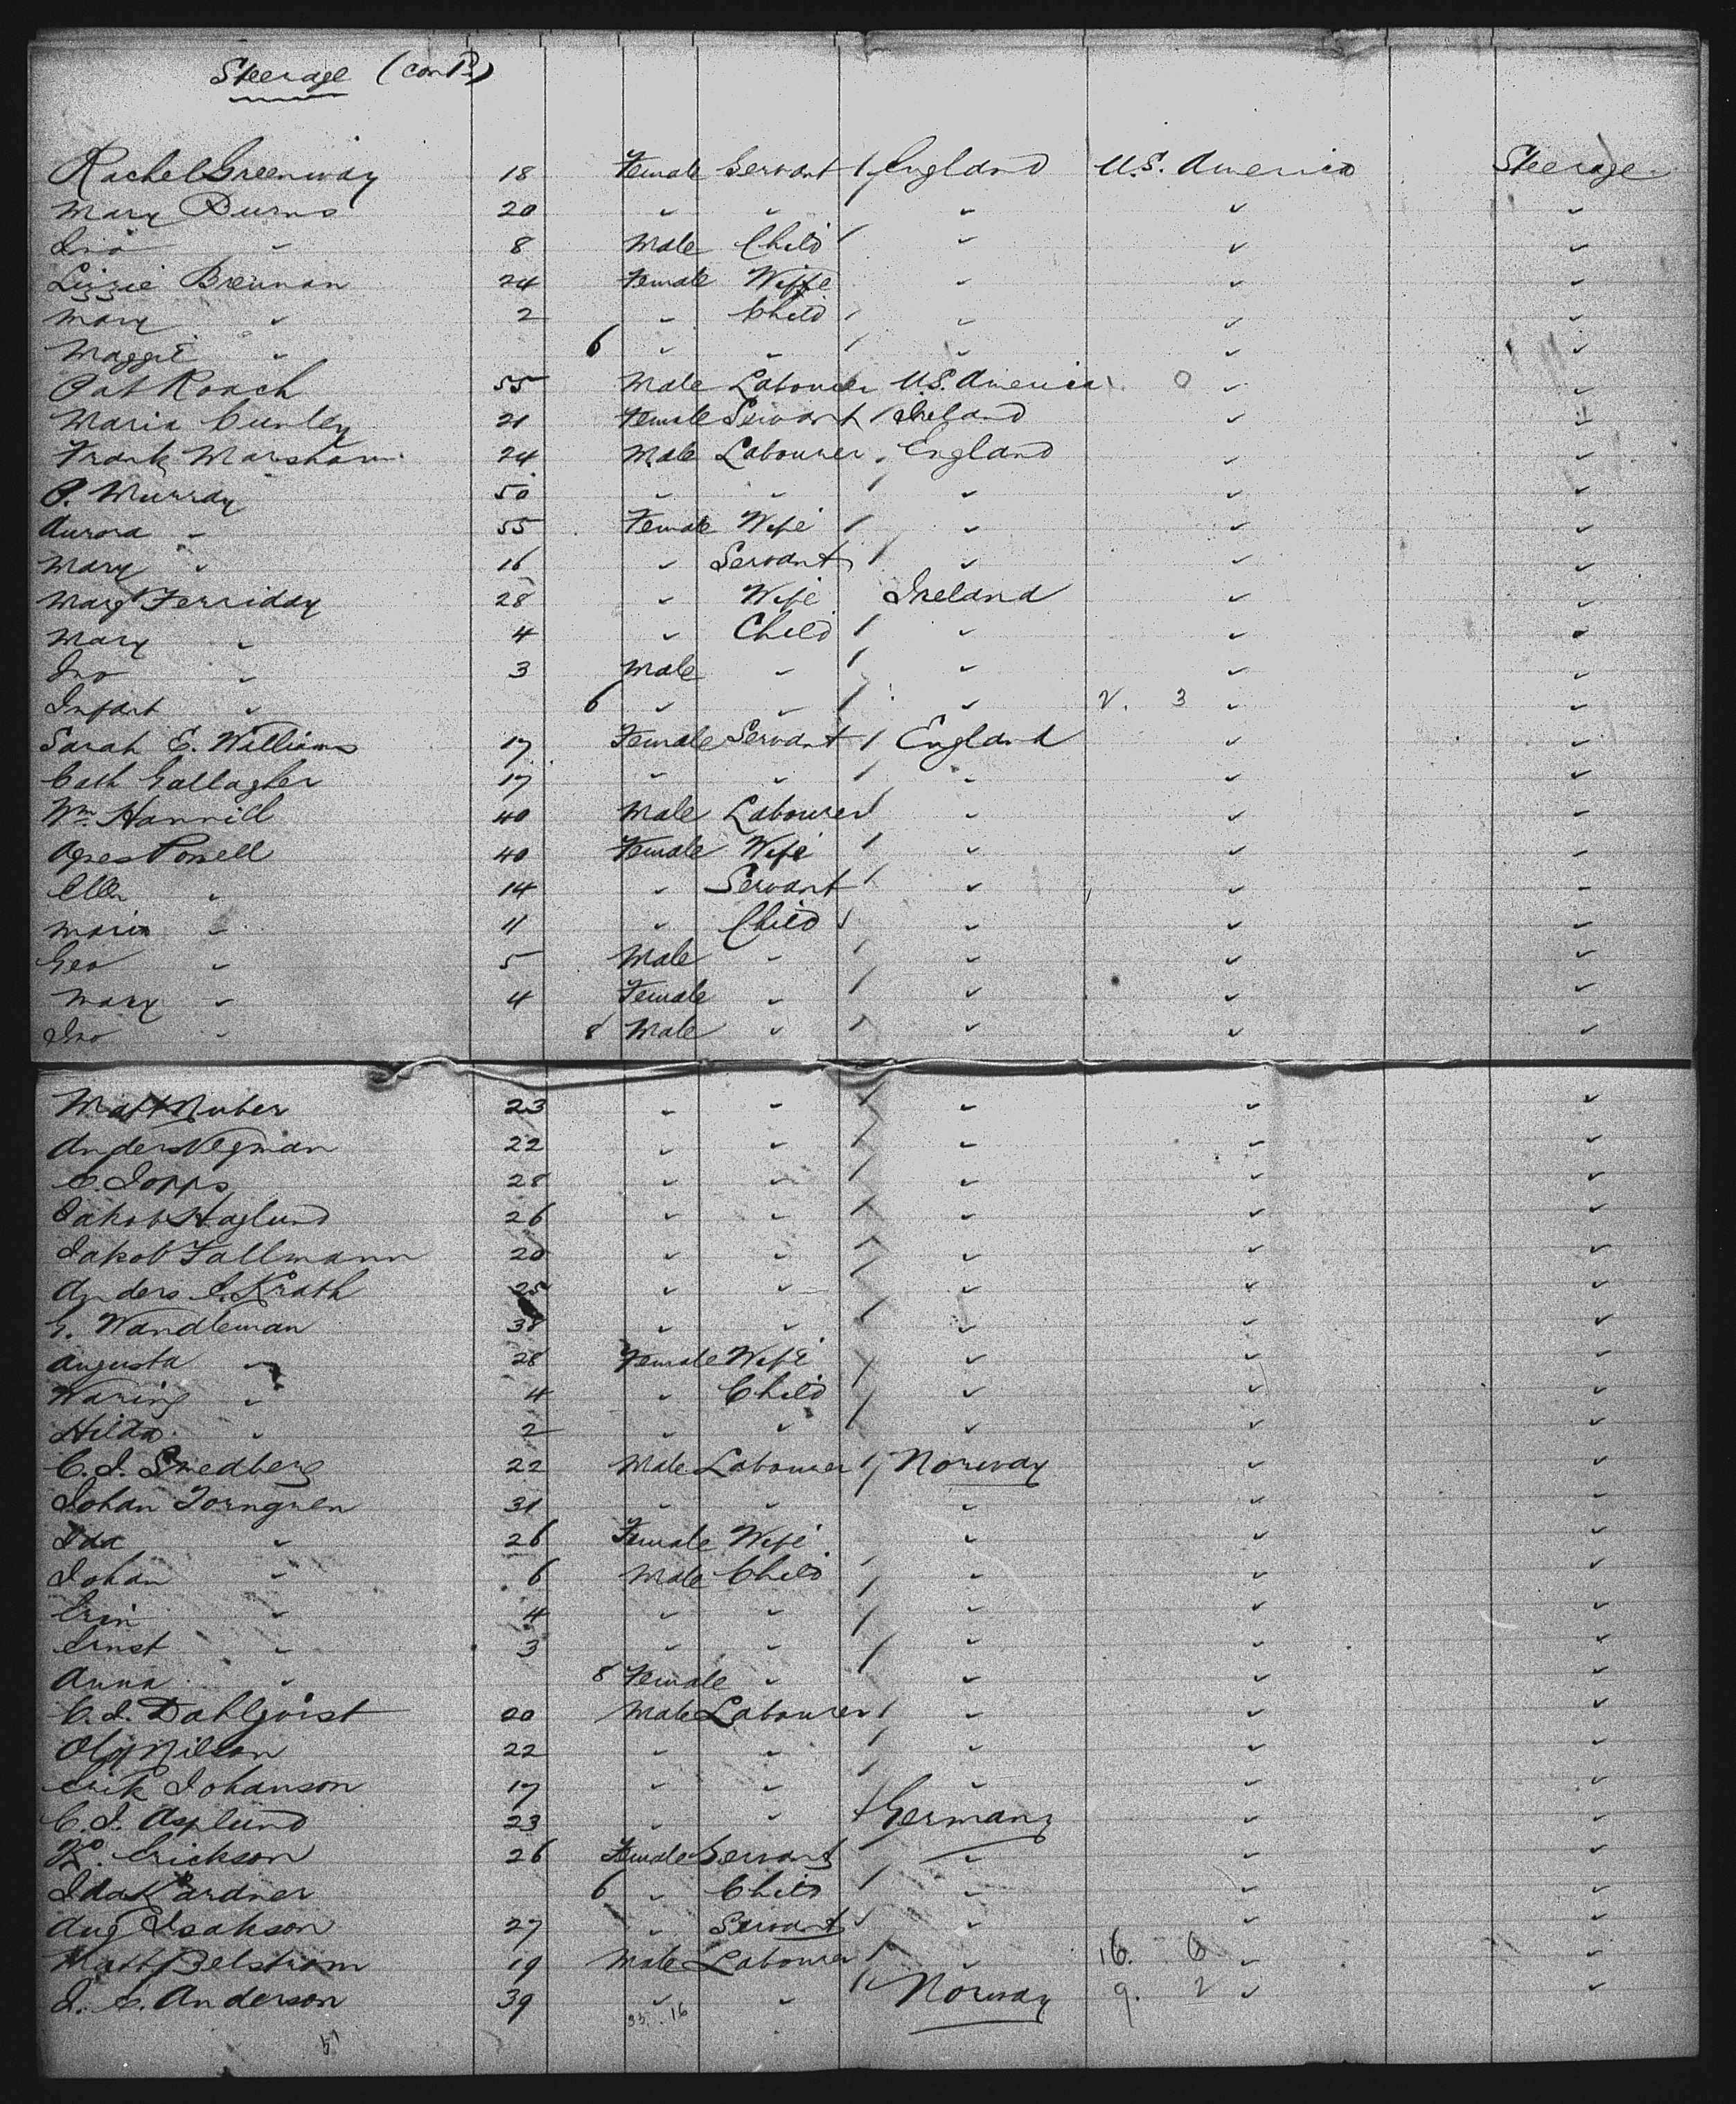 Steerage (cont.)
Rachel Greenway 18 Female Servant / England U.S. America Steerage
Mary Burns 20 " " " " "
Jno " 8 Male Child / " " "
Lizzie Brennan 24 Female Wife " " "
Mary " 2 " Child / " " "
Maggie " 6 " " / " " "
Pat Roach 55 Male Labourer U.S. America 0 " "
Maria Curley 21 Female Servant / Ireland " "
Frank Marsham 24 Male Labourer England " "
P. Murray 50 " " / " " "
Aurora " 55 Female Wife / " " "
Mary " 16 " Servant / " " "
Margt Ferriday 28 " Wife Ireland " "
Mary " 4 " Child / " " "
Jno " 3 Male " / " " "
Infant " 6 " " / " 2. 3 " "
Sarah E. Williams 17 Female Servant / England " "
Cath Gallagher 17 " " / " " "
Wm Hannill 40 Male Labourer / " " "
Agnes Powell 40 Female Wife / " " "
Ellen " 14 " Servant / " " "
Maria " 11 " Child / " " "
Geo " 5 Male " / " " "
Mary " 4 Female " / " " "
Jno " 8 Male " / " " "
Matt Nuber 23 " " / " " "
Anders Vegman 22 " " / " " "
Jopps 28 " " / " " "
Jakob Haglund 26 " " / " " "
Jakob Fallmann 20 " " / " " "
Anders Krath 25 " " / " " "
G. Wandleman 38 " " / " " "
Augusta " 28 Female Wife / " " "
Waring " 4 " Child / " " "
Hilda " 2 " " / " " "
C. J. Smedberg 22 Male Labourer / Norway " "
Johan Torngren 31 " " " " "
Ida " 26 Female Wife " " "
Johan " 6 Male Child / " " "
Erin " 4 " " / " " "
Ernst " 3 " " / " " "
Anna " 8 Female " " " "
C. J. Dahlqvist 20 Male Labourer / " " "
Olof Nilson 22 " " / " " "
Erik Johanson 17 " " / " " "
C. J. Asplund 23 " " / Germany " "
Erickson 26 Female Servant / " " "
Ida Kardner 6 " Child / " " "
Aug Isakson 27 " Servant / " " "
Matt Belstrom 19 Male Labourer / " 16. 6 " "
J. E. Anderson 39 " " / Norway 9. 2 " "
33. 16